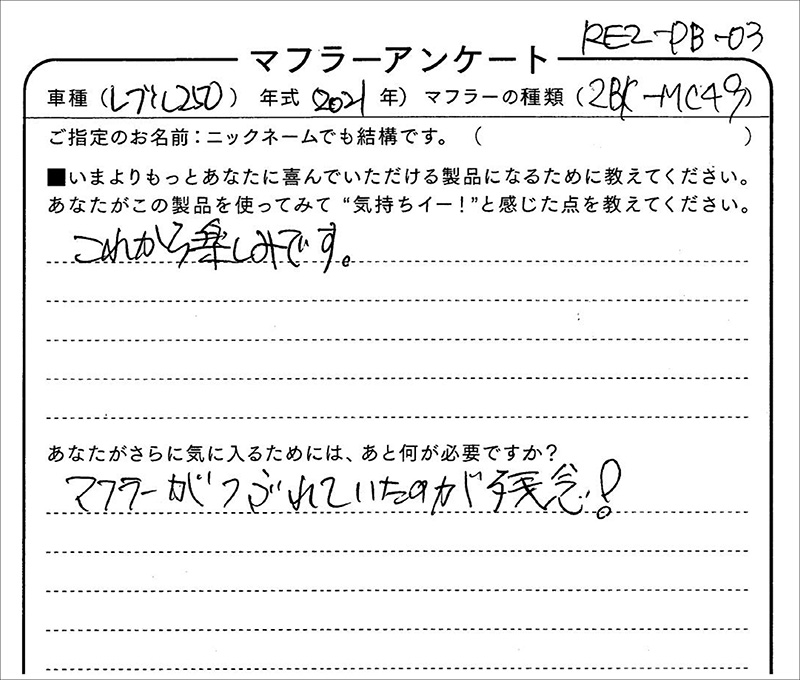 RE2-PB-03
マフラーアンケート
車種（レブル250） 年式（2021 年） マフラーの種類（2BK-MC49）
ご指定のお名前：ニックネームでも結構です。（ ）
■いまよりもっとあなたに喜んでいただける製品になるために教えてください。
あなたがこの製品を使ってみて “気持ちイー！”と感じた点を教えてください。
これから楽しみです。
あなたがさらに気に入るためには、あと何が必要ですか？
マフラーがつぶれていたのが残念！